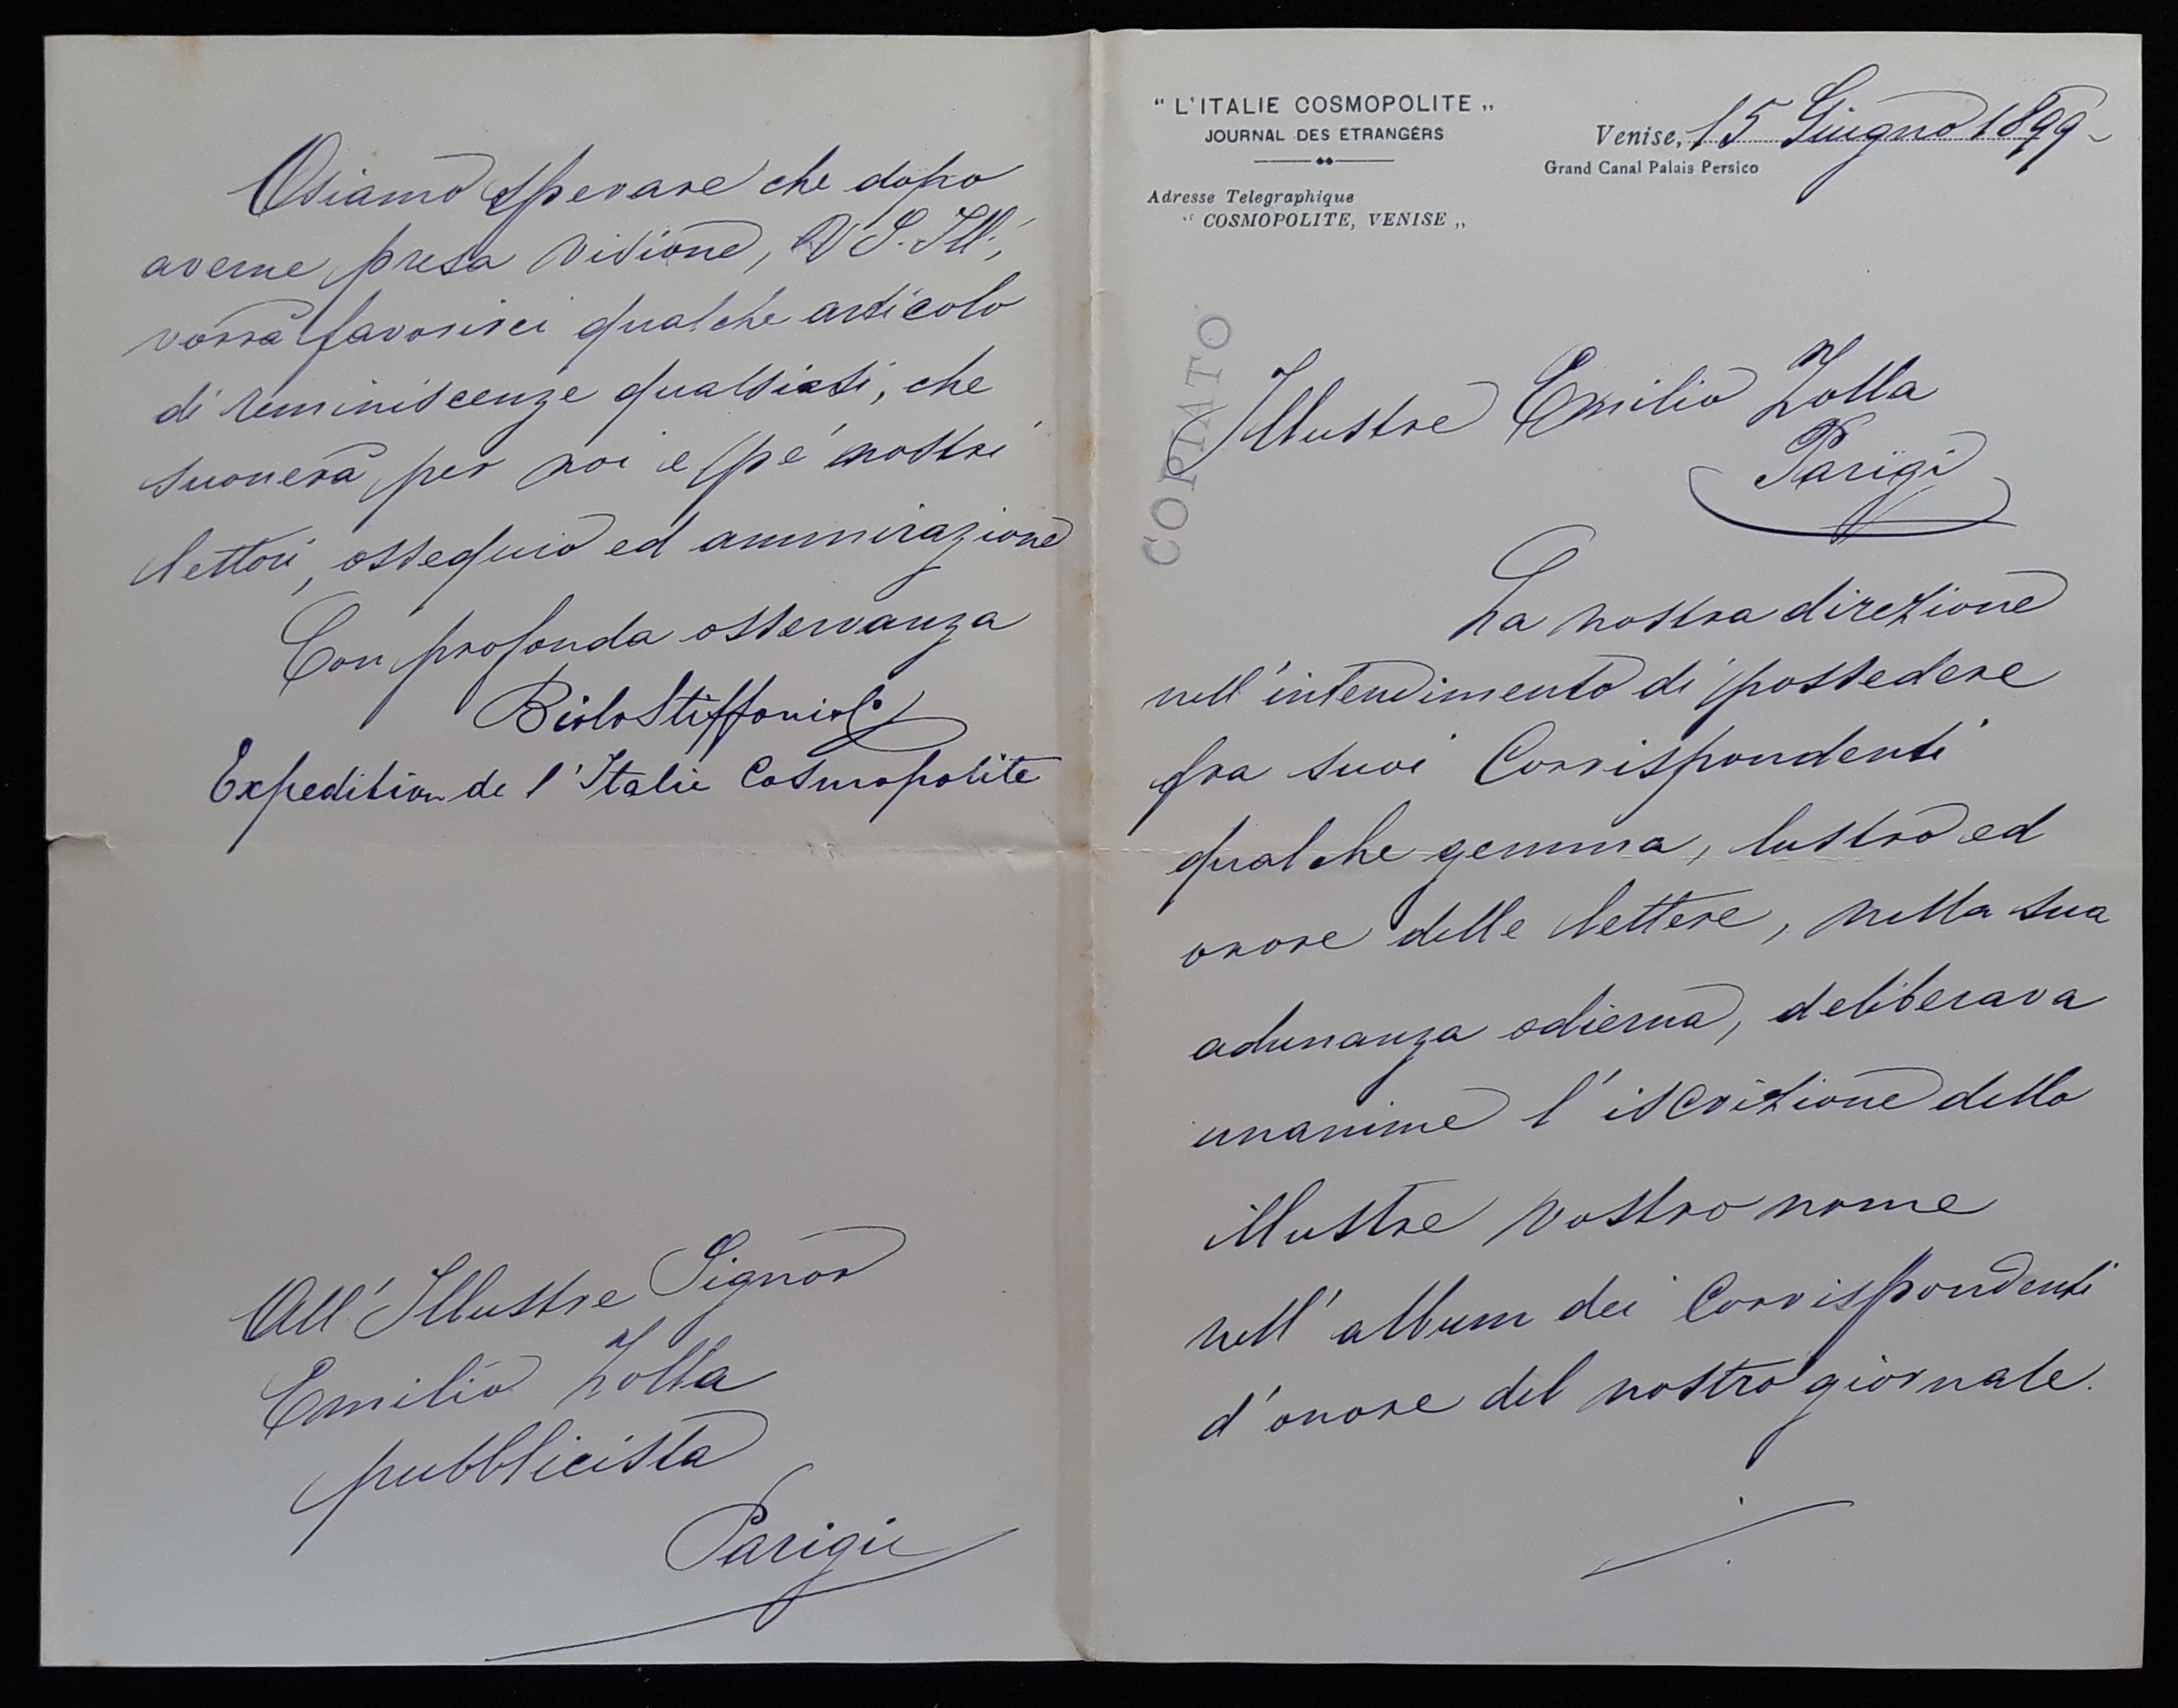 " L'ITALIE COSMOPOLITE „
JOURNAL DES ÉTRANGÉRS
Adresse Telegraphique
" COSMOPOLITE, VENISE „
Venise, 15 Giugno 1899
Grand Canal Palais Persico
COPIATO
Illustre Emilio Zolla
Parigi
La nostra direzione
nell'intendimento di possedere
fra suoi Corrispondenti
qualche gemma, lustro ed
onore delle lettere, nella sua
adunanza odierna, deliberava
unanime l'iscrizione dello
illustre vostro nome
nell'album dei Corrispondenti
d'onore del nostro giornale.
Osiamo sperare che dopo
averne presa visione, V S. Ill.,
vorrà favorirci qualche articolo
di reminiscenze qualsiasi, che
suonerà per noi e pe' nostri
lettori, ossequio ed ammirazione
Con profonda osservanza
Expedition de l'Italie Cosmopolite
All'Illustre Signor
Emilio Zolla
pubblicista
Parigi